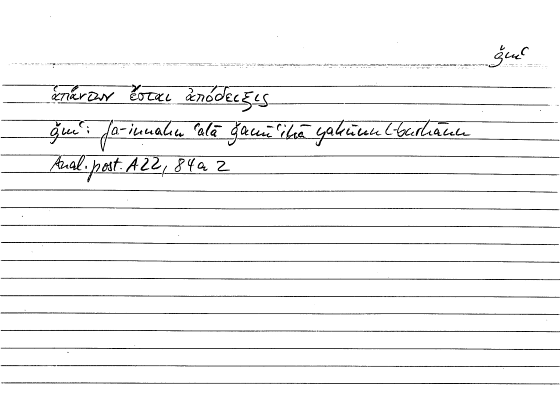 ǧmʿ
ἁπάντων ἔσται ἀπόδειξις
ǧmʿ: fa-innahu ʿalā ǧamīʿihā yakūnu l-burhānu
Anal. post. A22, 84a 2